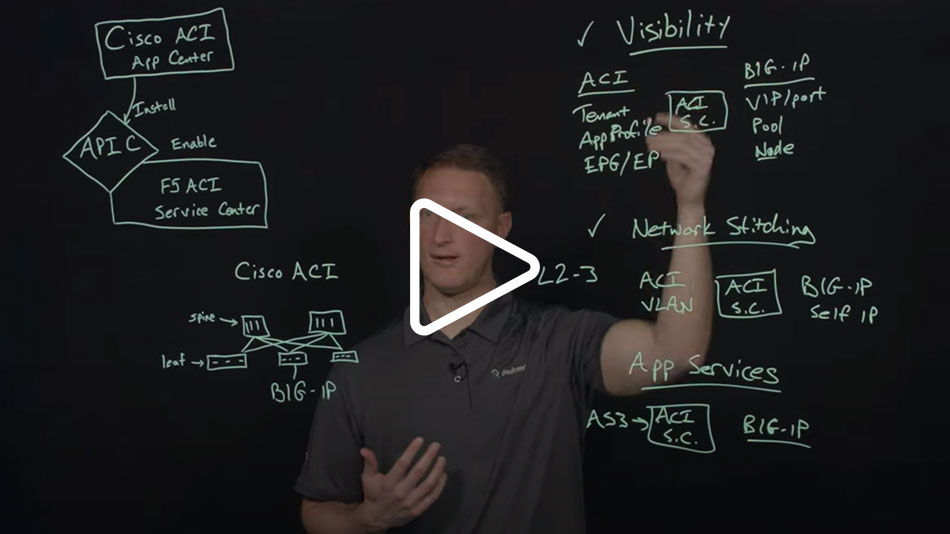 Cisco ACI
App Center
Install
APIC
Enable
F5 ACI
Service Center
Cisco ACI
spine
leaf
BIG-IP
✓ Visibility
ACI
Tenant
App Profile
EPG/EP
ACI
S.C.
BIG-IP
VIP/port
Pool
Node
✓ Network Stitching
L2-3
ACI
VLAN
ACI
S.C.
BIG-IP
Self IP
App Services
AS3
ACI
S.C.
BIG-IP